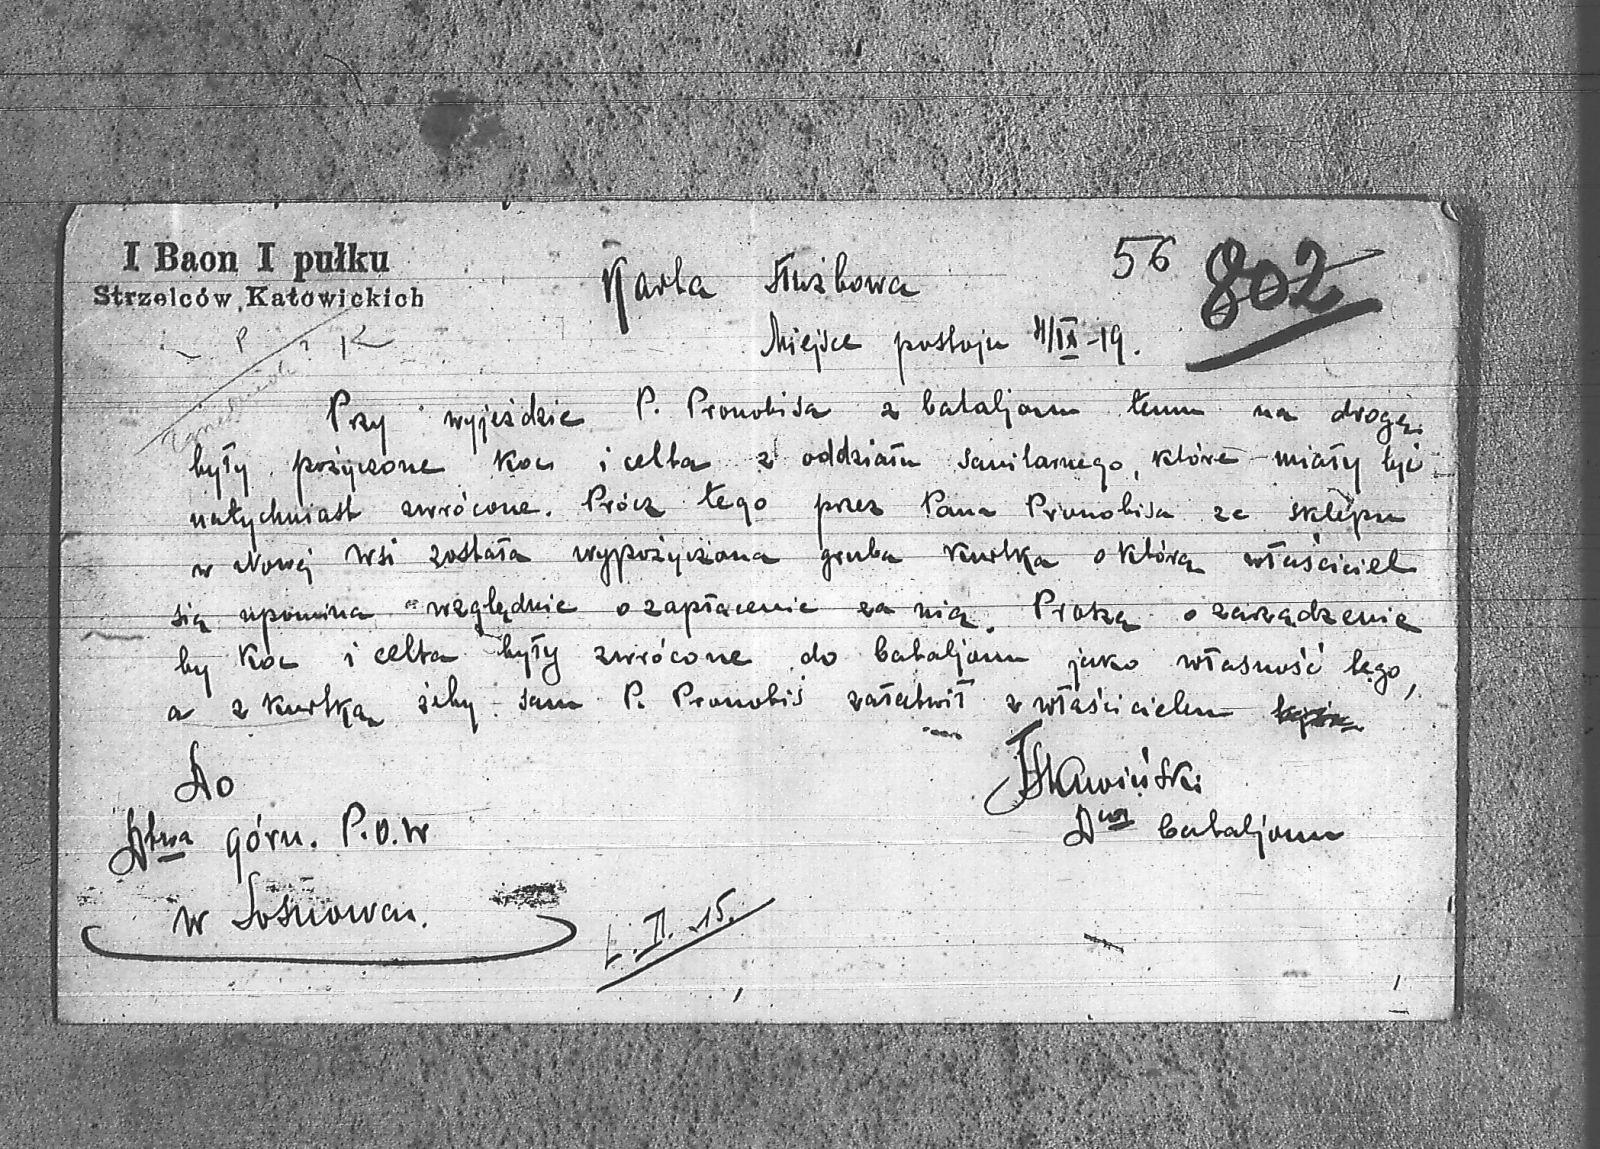 I Baon I pułku
Strzelców Katowickich
56 802
Karta służbowa
Miejsce postoju 4/IX-19.
Przy wyjeździe P. Pronobisa z bataljonu temu na drogę
były pożyczone koc i celta z oddziału sanitarnego, które miały być
natychmiast zwrócone. Prócz tego przez Pana Pronobisa ze sklepu
w Nowej Wsi została wypożyczona gruba kurtka o którą właściciel
się upomina względnie o zapłacenie za nią. Proszę o zarządzenie
by koc i celta były zwrócone do bataljonu jako własność tego,
a z kurtką żeby sam P. Pronobiś załatwił z właścicielem
Do
Dtwa górn. P.O.W
w Sosnowcu.
Dca bataljonu
L. II. 15.